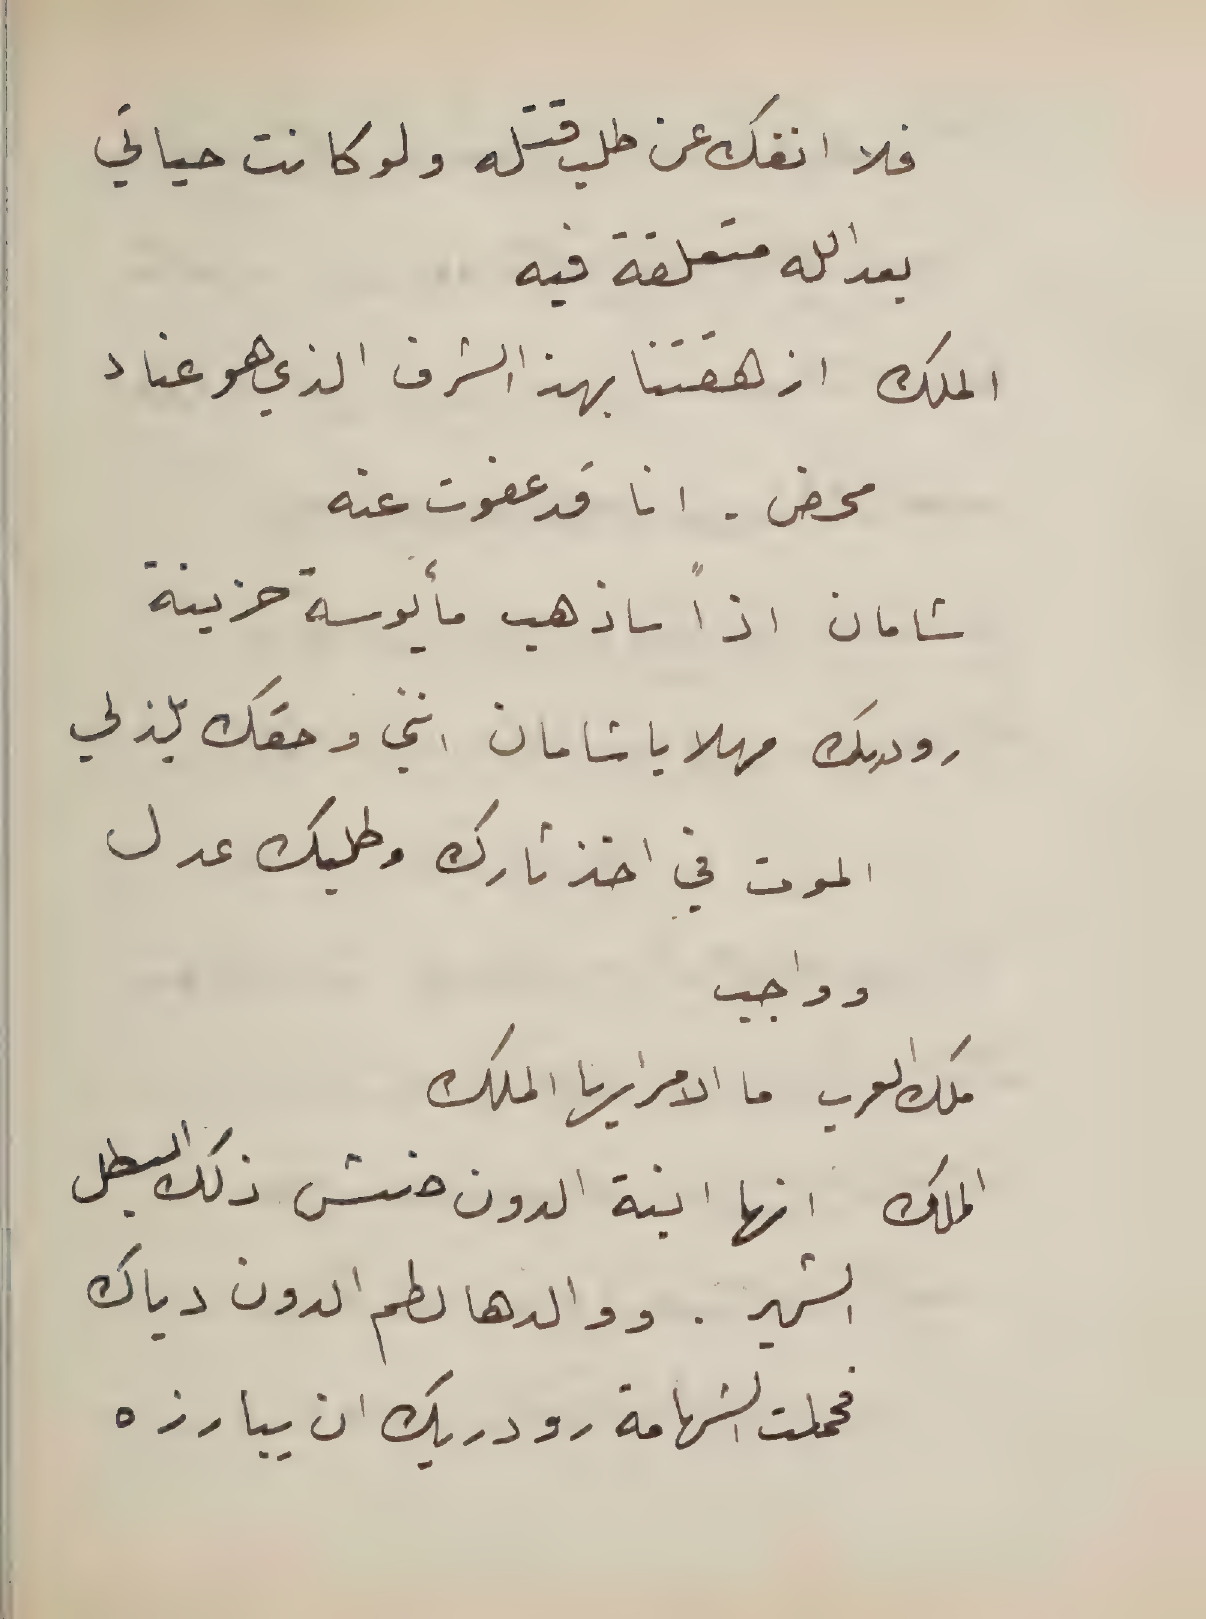 فلا انفك عن طلب قتله ولو كانت حياتي
بعد الله متعلقة فيه
الملك ازهقتنا بهذا الشرف الذي هو عناد
محض . انا قد عفوت عنه
شامان اذاً ساذهب مأيوسة حزينة
رودريك مهلا يا شامان انني وحقك يلذ لي
الموت في اخذ ثارك وطلبك عدل
وواجب
ملك العرب ما الامر ايها الملك
الملك انها ابنة الدون خنتش ذلك البطل
الشهير . ووالدها لطم الدون دياك
فحملت الشهامة رودريك ان يبارزه